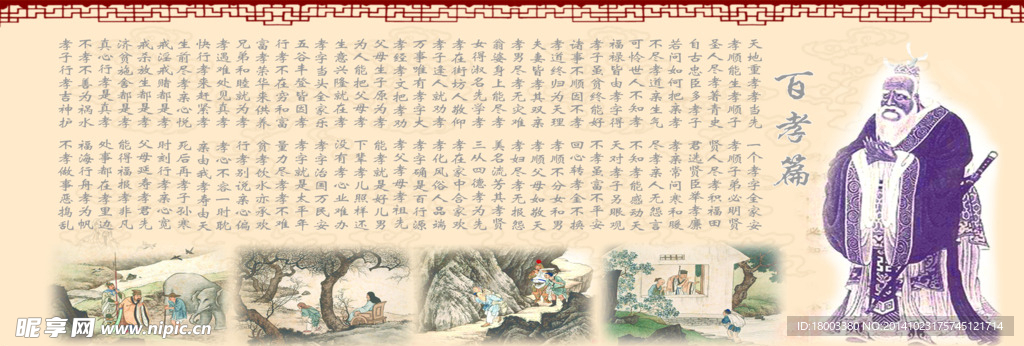 百孝篇
天地重孝孝当先 一个孝字全家安
孝顺能生孝顺子 孝顺子弟必明贤
圣人尽孝著青史 贤人尽孝积福田
自古忠臣多孝子 君选贤臣举孝廉
若问如何把亲孝 孝亲常问寒和暖
不尽孝道座生气 尽孝亲人无怨言
可怜世人不知孝 不知孝能感动天
福禄皆由孝字得 天对孝子另眼观
孝子虽贫终能好 不孝虽富不平安
诸事不顺因不孝 回心转孝金不换
孝道终归为天理 孝顺不分女和男
夫妻皆孝其双亲 孝顺父母如敬天
孝男尽孝无灾难 孝妇尽孝无报怨
翁婆身上能尽孝 美名流芳其孝贤
女得淑名先学孝 三从四德孝为先
孝在街坊人敬仰 孝在家中合家欢
孝子逢人就劝孝 孝化风俗人品端
万事唯有孝字大 孝字确是百行源
孝经孝文把孝劝 孝父孝母孝祖先
父母生子原为孝 能孝就是好儿男
为人能把父母孝 下辈孝儿照样还
生意兴隆就在孝 没有孝心业难办
孝字当头全家乐 孝字治国万民安
五谷丰登皆因孝 孝字就是太平年
行孝不在穷和富 量力尽孝孝不难
富孝荣华共供养 贫孝饮水亦承欢
兄弟和睦就为孝 行孝别说亲心偏
孝遇难处见真孝 孝心不容一时耽
快行孝来赶紧孝 亲由我孝寿由天
生前尽孝亲心悦 死后再孝子孙寒
戒淫戒赌都是孝 时刻行孝亲心宽
戒杀放生都是孝 父母延寿孝君先
济贫施舍都是孝 能得福报孝非凡
真心行孝是真孝 处事都在孝里边
不孝不善为祸水 福海行舟孝为帆
孝子行孝吉神护 不孝做事恶捣乱
昵享网 www.nipic.cn
ID:18003380 NO:20141023175745121714